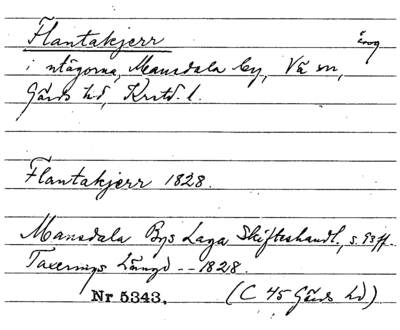 Flantakjerr
i utägorna, Mansdala by, Vä sn,
Gärds hd, Krstd. l.
Flantakjerr 1828.
Mansdala Bys Laga Skifteshandl., s. 93 ff.
Taxerings Längd -- 1828.
Nr 5343. (C 45 Gärds hd)